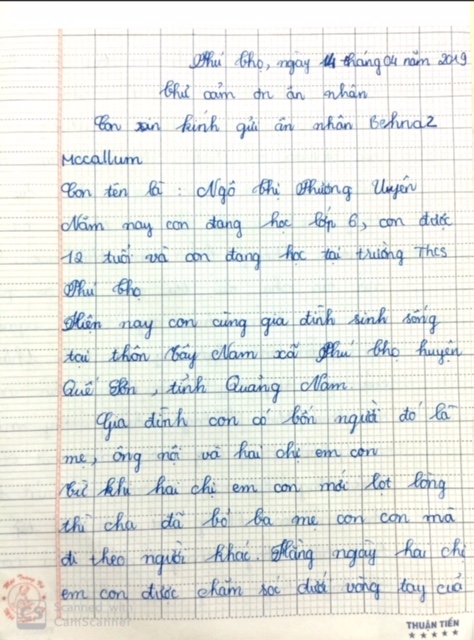 Phú Thọ, ngày 14 tháng 04 năm 2019
Thư cảm ơn ân nhân
Con xin kính gửi ân nhân Behnaz
Mccallum
Con tên là : Ngô Thị Phương Uyên
Năm nay con đang học lớp 6, con được
12 tuổi và con đang học tại trường Thcs
Phú Thọ
Hiện nay con cùng gia đình sinh sống
tại thôn Tây Nam xã Phú Thọ huyện
Quế Sơn, tỉnh Quảng Nam.
Gia đình con có bốn người đó là
mẹ, ông nội và hai chị em con
Từ khi hai chị em con mới lọt lòng
thì cha đã bỏ ba mẹ con con mà
đi theo người khác. Hằng ngày hai chị
em con được chăm sóc dưới vòng tay của
Scanned with
CamScanner
THUẬN TIẾN